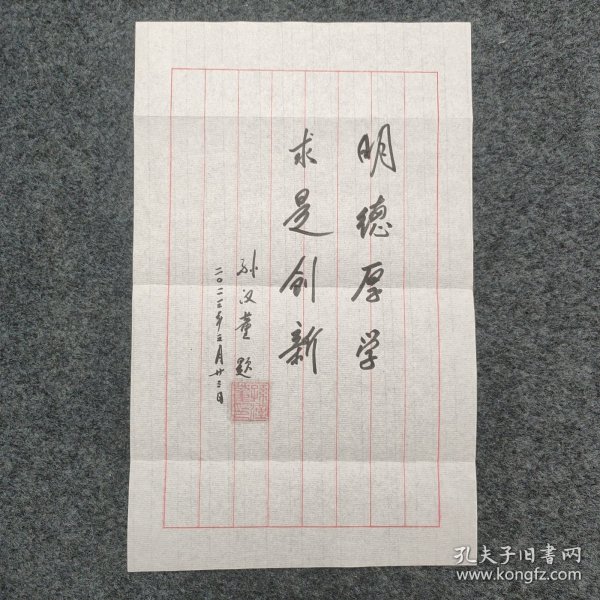 明德厚学
求是创新
孙汉董 题
二〇二三年三月廿三日
孔夫子旧书网
www.kongfz.com